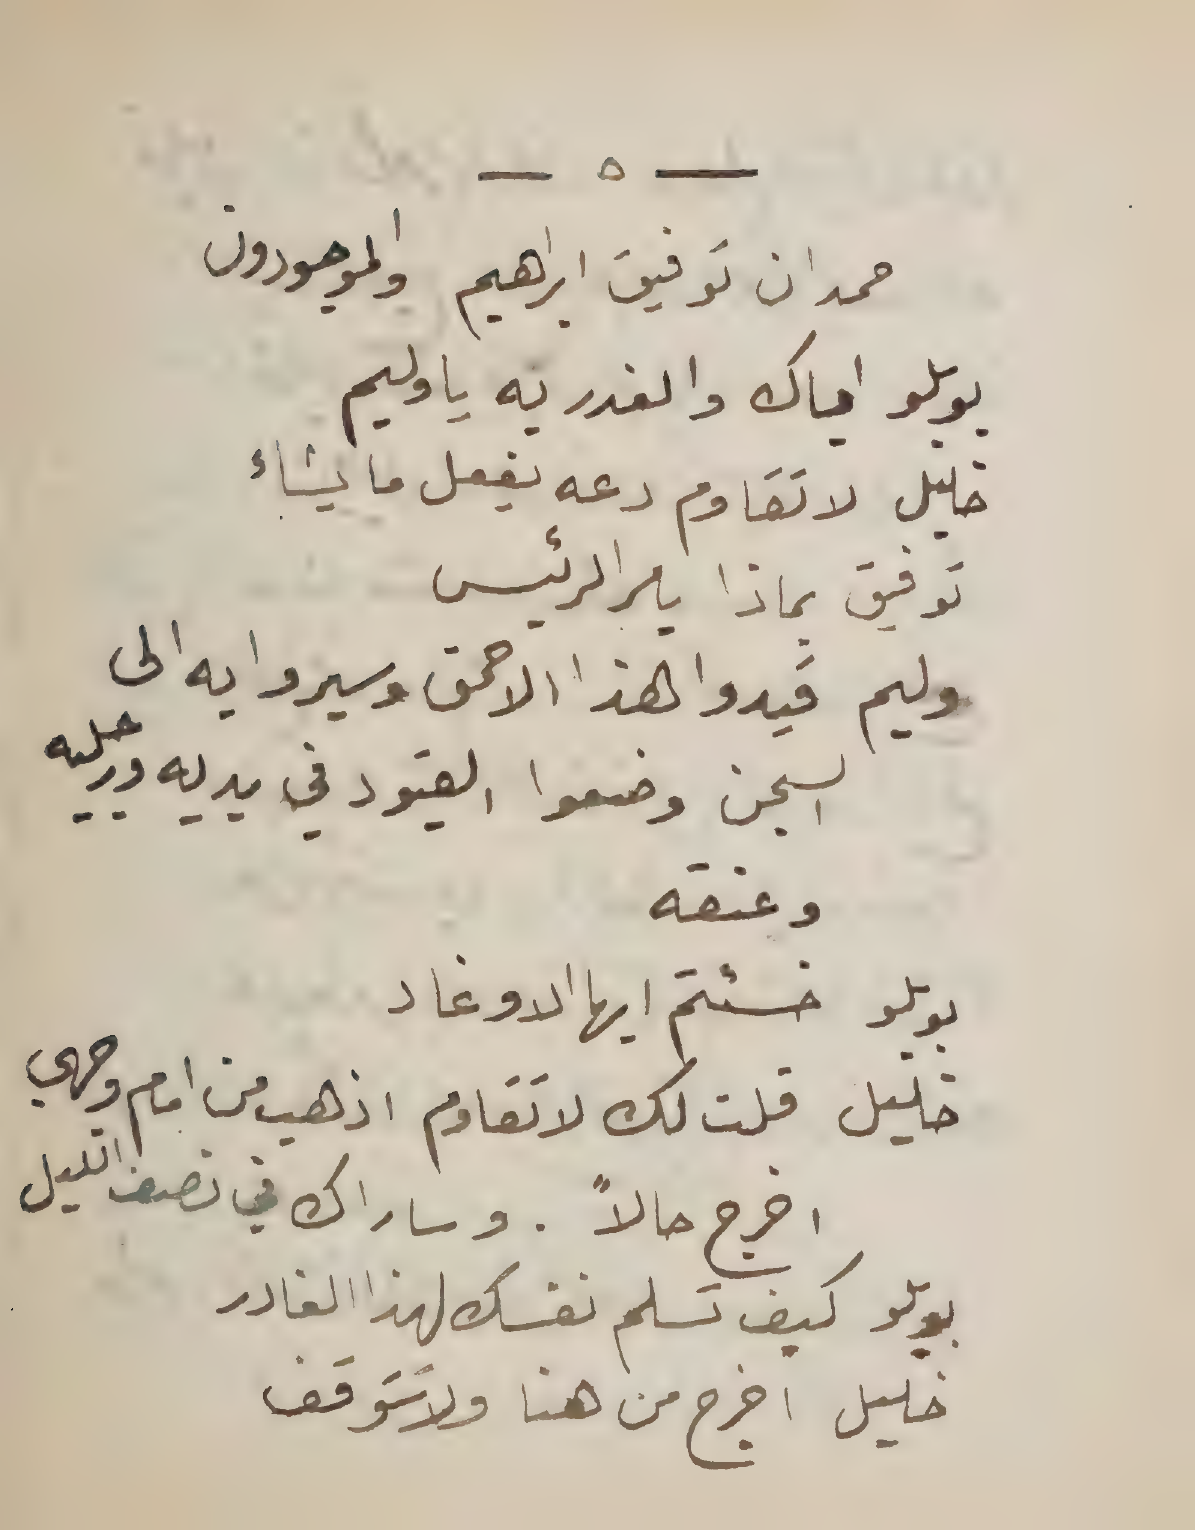 — ٥ —
حمدان توفيق ابراهيم والموجودون
بوبلو اياك والغدر به ياوليم
خليل لا تقاوم دعه يفعل ما يشاء
توفيق بماذا يامر الرئيس
وليم قيدوا هذا الاحمق وسيروا به الى
السجن وضعوا القيود في يديه ورجليه
وعنقه
بوبلو خسئتم ايها الاوغاد
خليل قلت لك لا تقاوم اذهب من امام وجهي
اخرج حالاً . وساراك في نصف الليل
بوبلو كيف تسلم نفسك لهذا الغادر
خليل اخرج من هنا ولا تتوقف